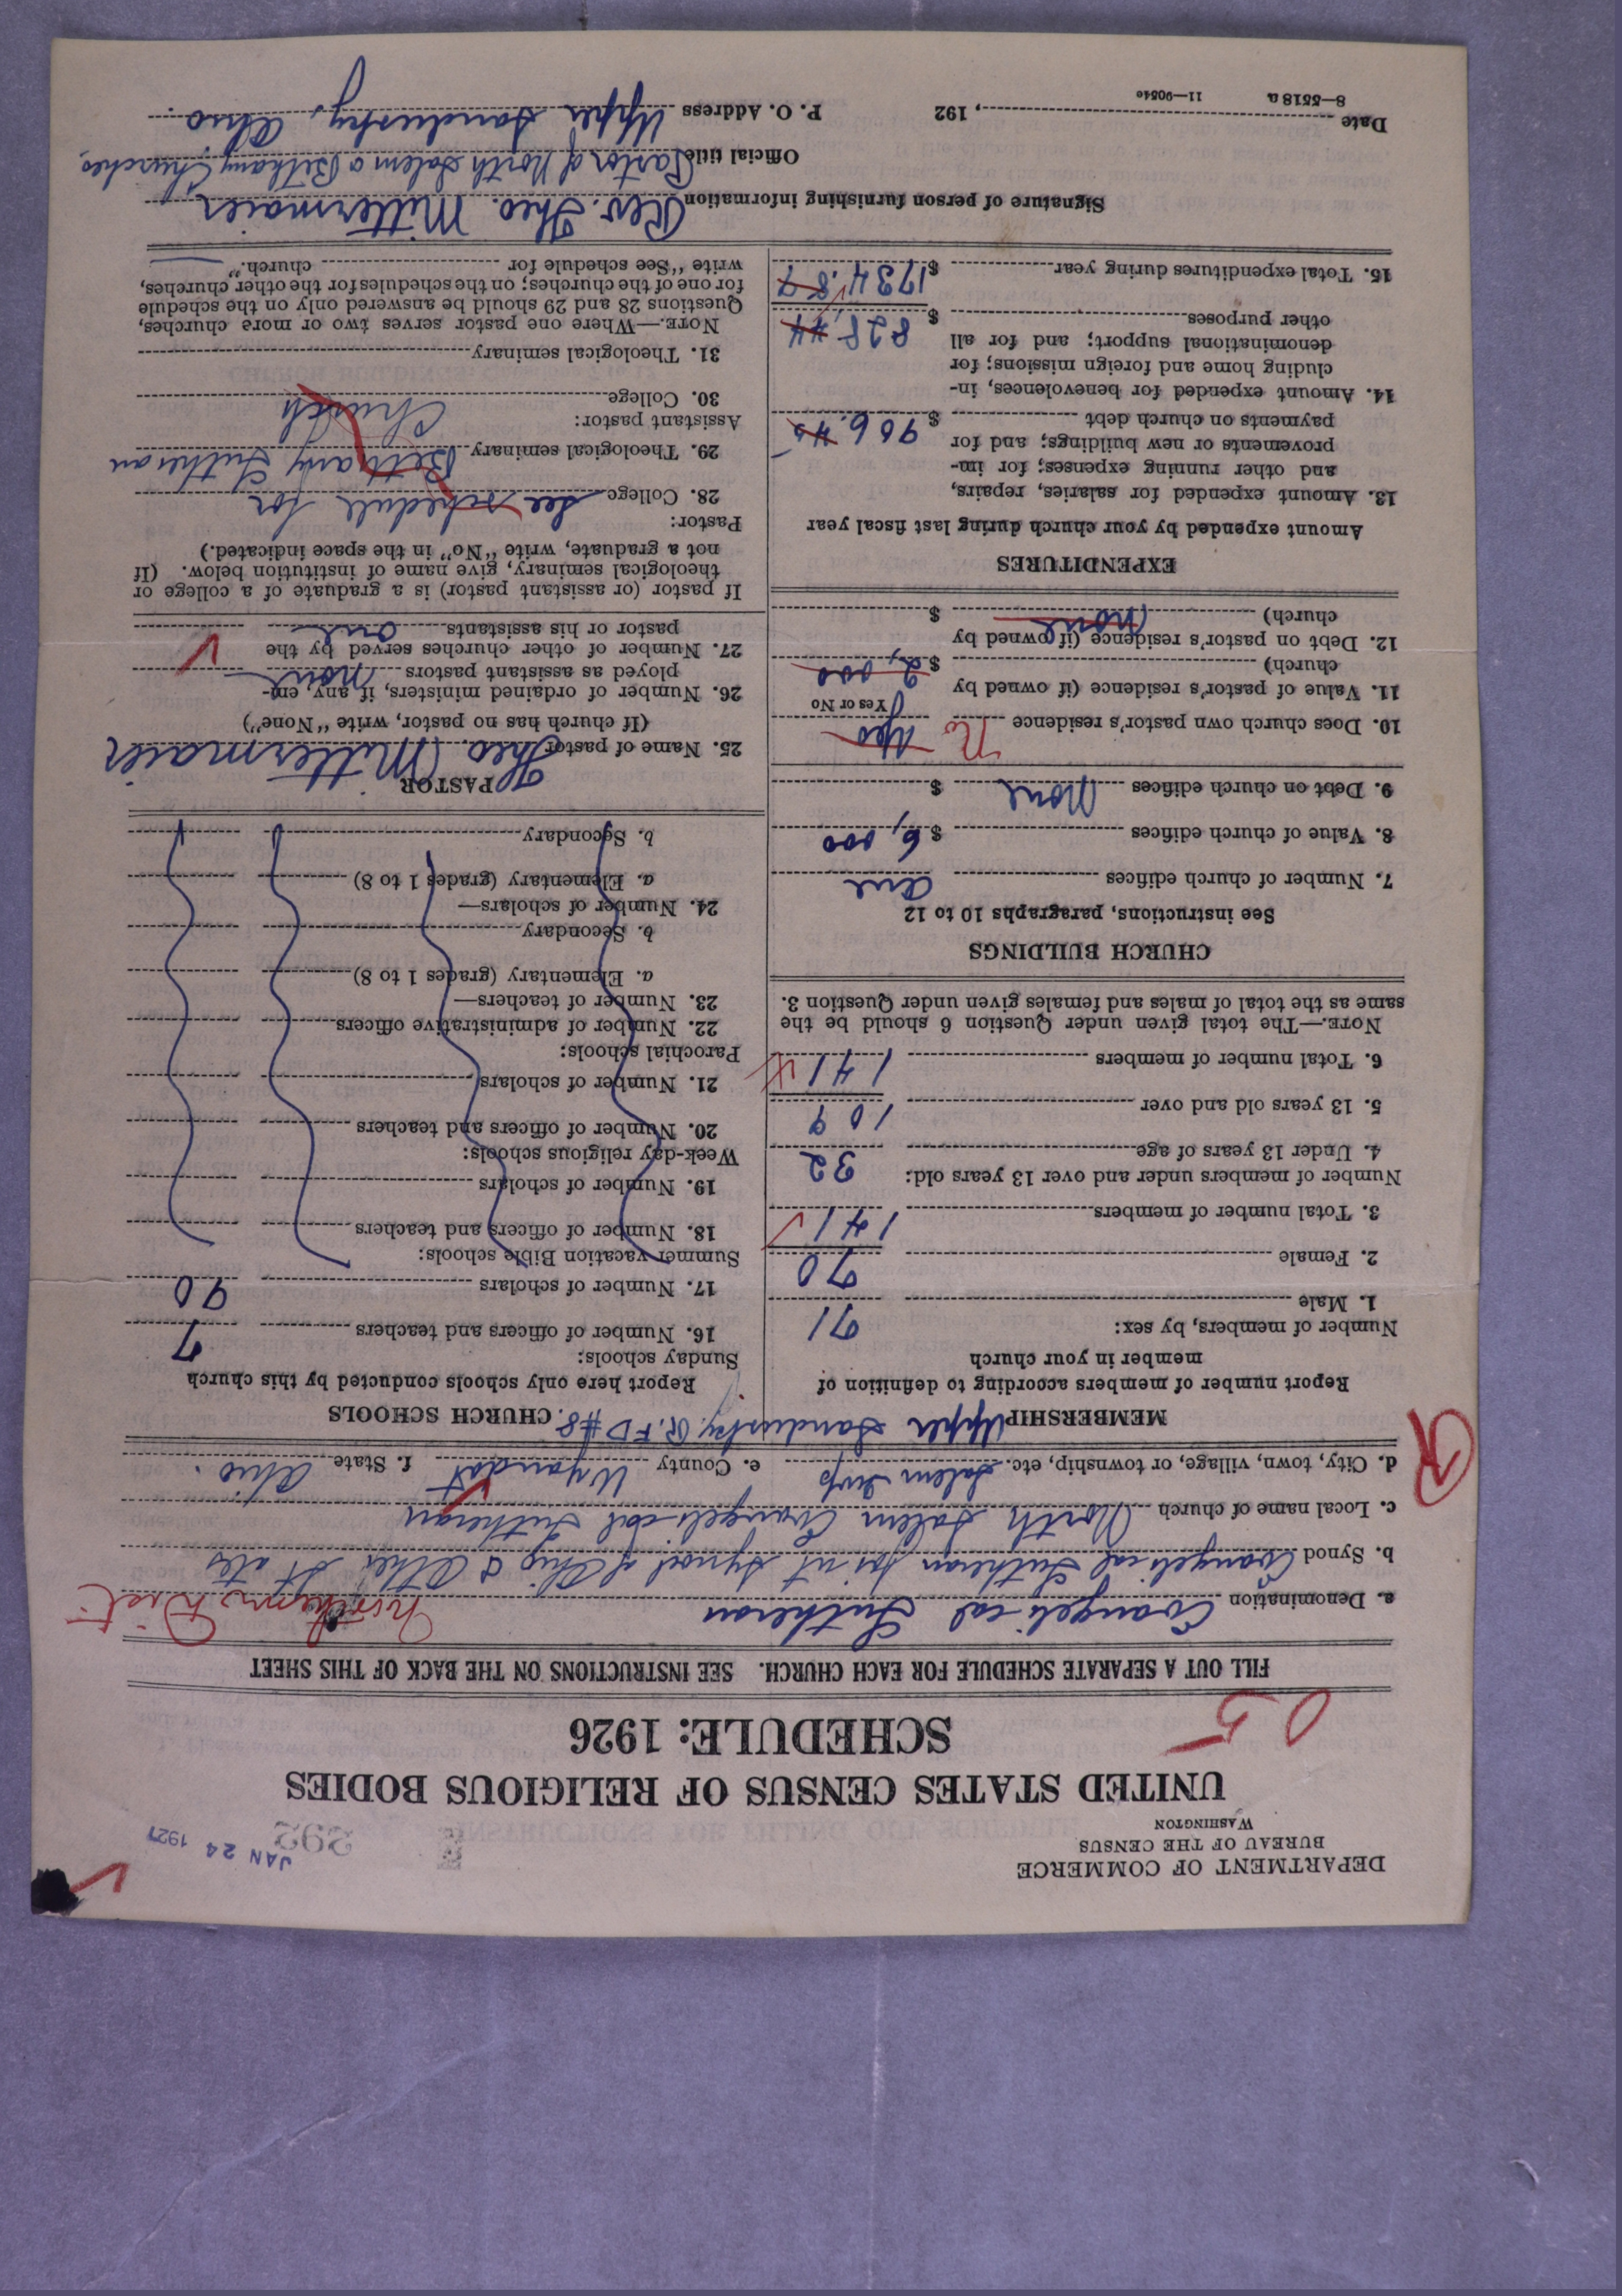 DEPARTMENT OF COMMERCE
BUREAU OF THE CENSUS
WASHINGTON
JAN 24 1927
292
UNITED STATES CENSUS OF RELIGIOUS BODIES
SCHEDULE: 1926
05
FILL OUT A SEPARATE SCHEDULE FOR EACH CHURCH. SEE INSTRUCTIONS ON THE BACK OF THIS SHEET
a. Denomination Evangelical Lutheran Northern Dist
b. Synod Evangelical Lutheran Joint Synod of Ohio & Other States
c. Local name of church North Salem Evangelical Lutheran
d. City, town, village, or township, etc. Salem Twp e. County Wyandot f. State Ohio.
R
Upper Sandusky, R.F.D #8.
MEMBERSHIP
Report number of members according to definition of
member in your church
Number of members, by sex:
1. Male 71
2. Female 70
3. Total number of members 141
Number of members under and over 13 years old:
4. Under 13 years of age 32
5. 13 years old and over 109
6. Total number of members 141
NOTE.—The total given under Question 6 should be the
same as the total of males and females given under Question 3.
CHURCH BUILDINGS
See instructions, paragraphs 10 to 12
7. Number of church edifices one
8. Value of church edifices $6,000
9. Debt on church edifices None $
10. Does church own pastor's residence No Yes
Yes or No
11. Value of pastor's residence (if owned by
church) $2,000
12. Debt on pastor's residence (if owned by
church) None $
EXPENDITURES
Amount expended by your church during last fiscal year
13. Amount expended for salaries, repairs,
and other running expenses; for im-
provements or new buildings; and for
payments on church debt $906.43
14. Amount expended for benevolences, in-
cluding home and foreign missions; for
denominational support; and for all
other purposes $828.44
15. Total expenditures during year $1734.87
CHURCH SCHOOLS
Report here only schools conducted by this church
Sunday schools:
16. Number of officers and teachers 7
17. Number of scholars 90
Summer vacation Bible schools:
18. Number of officers and teachers
19. Number of scholars
Week-day religious schools:
20. Number of officers and teachers
21. Number of scholars
Parochial schools:
22. Number of administrative officers
23. Number of teachers—
a. Elementary (grades 1 to 8)
b. Secondary
24. Number of scholars—
a. Elementary (grades 1 to 8)
b. Secondary
PASTOR
25. Name of pastor Theo. Mittermaier
(If church has no pastor, write "None")
26. Number of ordained ministers, if any, em-
ployed as assistant pastors None
27. Number of other churches served by the
pastor or his assistants one
If pastor (or assistant pastor) is a graduate of a college or
theological seminary, give name of institution below. (If
not a graduate, write "No" in the space indicated.)
Pastor:
28. College See schedule for
29. Theological seminary Bethany Lutheran
Assistant pastor: Church
30. College
31. Theological seminary
NOTE.—Where one pastor serves two or more churches,
Questions 28 and 29 should be answered only on the schedule
for one of the churches; on the schedules for the other churches,
write "See schedule for church."
Signature of person furnishing information Rev. Theo. Mittermaier
Official title Pastor of North Salem & Bethany Churches,
Date , 192 P. O. Address Upper Sandusky, Ohio.
8—5518 a 11—9054c